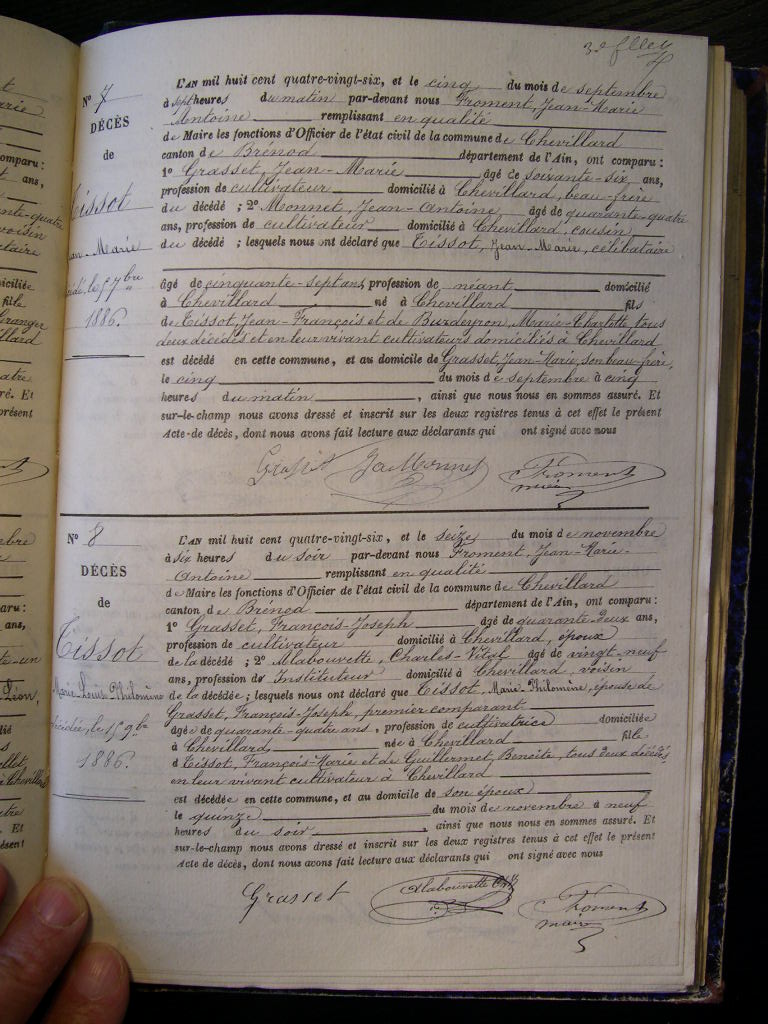 3e
N° 7
DÉCÈS
de
Tissot
Jean-Marie
décédé le 5 7bre
1886.
L'AN mil huit cent quatre-vingt-six, et le cinq du mois de septembre
à sept heures du matin par-devant nous Froment, Jean-Marie
Antoine remplissant en qualité
de Maire les fonctions d'Officier de l'état civil de la commune de Chevillard
canton de Brénod département de l'Ain, ont comparu :
1° Grasset, Jean-Marie âgé de soixante-six ans,
profession de cultivateur domicilié à Chevillard, beau-frère
du décédé ; 2° Monnet, Jean-Antoine âgé de quarante-quatre
ans, profession de cultivateur domicilié à Chevillard, cousin
du décédé ; lesquels nous ont déclaré que Tissot, Jean-Marie, célibataire
âgé de cinquante-sept ans, profession de néant domicilié
à Chevillard né à Chevillard fils
de Tissot, Jean-François et de Burdeyron, Marie-Charlotte, tous
deux décédés et en leur vivant cultivateurs domiciliés à Chevillard
est décédé en cette commune, et au domicile de Grasset, Jean-Marie, son beau-frère,
le cinq du mois de septembre à cinq
heures du matin, ainsi que nous nous en sommes assuré. Et
sur-le-champ nous avons dressé et inscrit sur les deux registres tenus à cet effet le présent
Acte de décès, dont nous avons fait lecture aux déclarants qui ont signé avec nous
Grasset JaMonnet Froment
maire
N° 8
DÉCÈS
de
Tissot
Marie Louise Philomène
décédée, le 15 9bre
1886.
L'AN mil huit cent quatre-vingt-six, et le seize du mois de novembre
à six heures du soir par-devant nous Froment, Jean-Marie-
Antoine remplissant en qualité
de Maire les fonctions d'Officier de l'état civil de la commune de Chevillard
canton de Brénod département de l'Ain, ont comparu :
1° Grasset, François-Joseph âgé de quarante deux ans,
profession de cultivateur domicilié à Chevillard, époux
de la décédée ; 2° Malabouvette, Charles-Vital âgé de vingt neuf
ans, profession de Instituteur domicilié à Chevillard, voisin
de la décédée ; lesquels nous ont déclaré que Tissot, Marie-Philomène, épouse de
Grasset, François-Joseph, premier comparant
âgée de quarante-quatre ans, profession de cultivatrice domiciliée
à Chevillard, née à Chevillard fille
d Tissot, François-Marie et de Guillermet, Benoite, tous deux décédés,
en leur vivant cultivateur à Chevillard
est décédée en cette commune, et au domicile de son époux
le quinze du mois de novembre à neuf
heures du soir, ainsi que nous nous en sommes assuré. Et
sur-le-champ nous avons dressé et inscrit sur les deux registres tenus à cet effet le présent
Acte de décès, dont nous avons fait lecture aux déclarants qui ont signé avec nous
Grasset Malabouvette Froment
maire